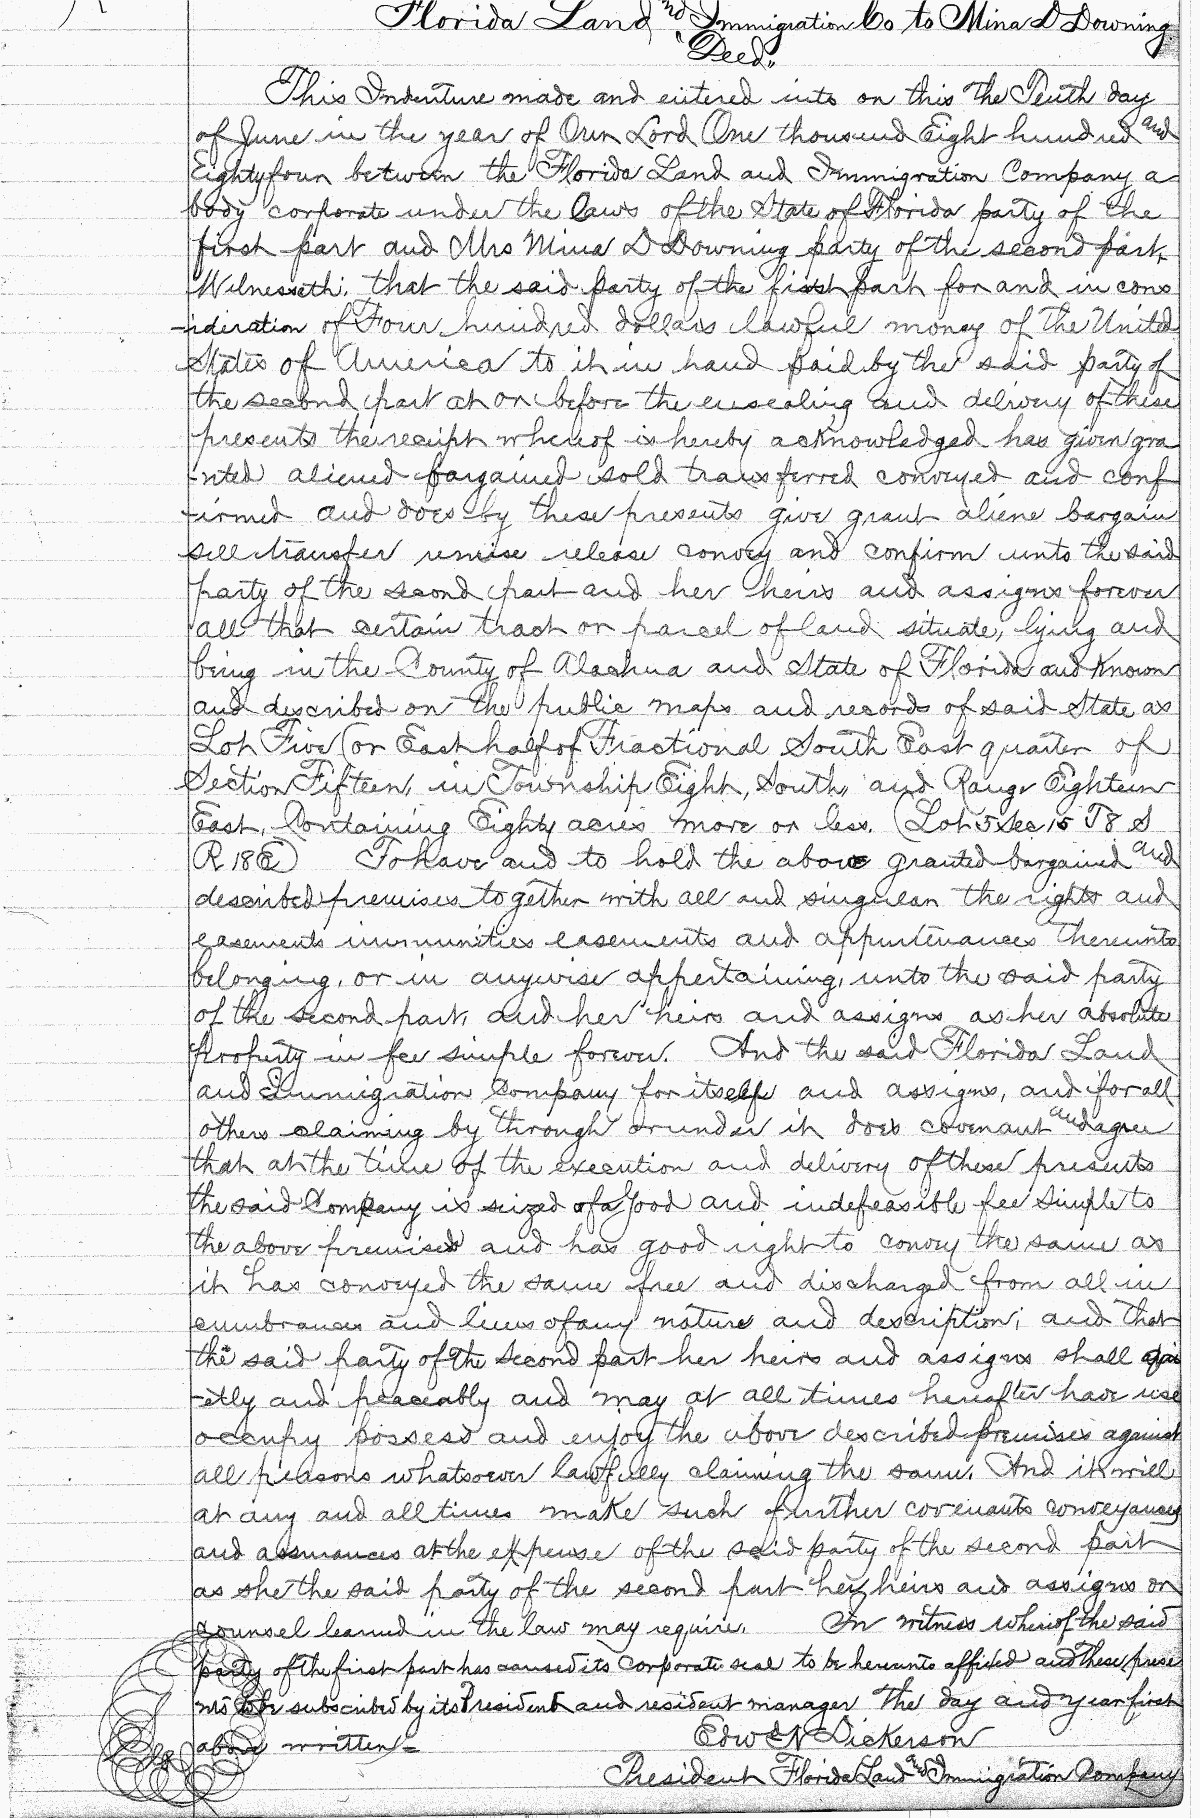 Florida Land and Immigration Co to Mina D Downing
"Deed"
This Indenture made and entered into on this the Tenth day
of June in the year of Our Lord One thousand Eight hundred and
Eightyfour between the Florida Land and Immigration Company a
body corporate under the laws of the State of Florida party of the
first part and Mrs Mina D Downing party of the second part,
Witnesseth, that the said party of the first part for and in cons
-ideration of Four hundred dollars lawful money of the United
States of America to it in hand paid by the said party of
the second part at or before the ensealing and delivery of these
presents the receipt whereof is hereby acknowledged has given gra
-nted aliened bargained sold transferred conveyed and conf
-irmed and does by these presents give grant aliene bargain
sell transfer remise release convey and confirm unto the said
party of the second part and her heirs and assigns forever
all that certain tract or parcel of land situate, lying and
being in the County of Alachua and State of Florida and known
and described on the public maps and records of said State as
Lot Five (or East half of Fractional South East quarter of
Section Fifteen, in Township Eight, South, and Range Eighteen
East, Containing Eighty acres more or less. (Lot 5 Sec 15 T8 S
R 18 E) To have and to hold the above granted bargained and
described premises together with all and singular the rights and
easements immunities easements and appurtenances thereunto
belonging, or in anywise appertaining, unto the said party
of the second part, and her heirs and assigns as her absolute
property in fee simple forever. And the said Florida Land
and Immigration Company for itself and assigns, and for all
others claiming by through or under it does covenant and agree
that at the time of the execution and delivery of these presents
the said Company is seized of a good and indefeasible fee simple to
the above premises and has good right to convey the same as
it has conveyed the same free and discharged from all in
cumbrances and liens of any nature and description; and that
the said party of the second part her heirs and assigns shall qui
-etly and peaceably and may at all times hereafter have use
occupy possess and enjoy the above described premises against
all persons whatsoever lawfully claiming the same. And it will
at any and all times make such further covenants conveyances
and assurances at the expense of the said party of the second part
as she the said party of the second part her heirs and assigns or
counsel learned in the law may require. In witness whereof the said
party of the first part has caused its corporate seal to be hereunto affixed and these prese
nts to be subscribed by its President and resident manager the day and year first
above written=
Edw N Dickerson
President Florida Land and Immigration Company